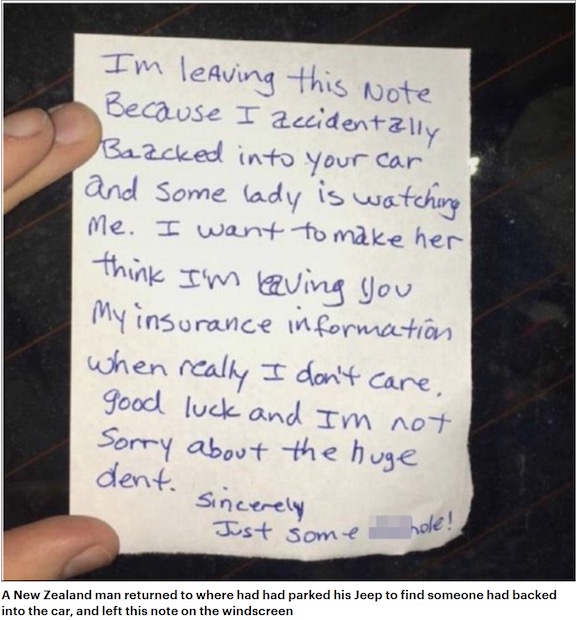 Im leaving this Note
Because I accidentally
Baacked into your car
and some lady is watching
Me. I want to make her
think I'm leaving you
My insurance information
when really I don't care.
good luck and Im not
Sorry about the huge
dent.
Sincerely
Just some hole!
A New Zealand man returned to where had had parked his Jeep to find someone had backed
into the car, and left this note on the windscreen